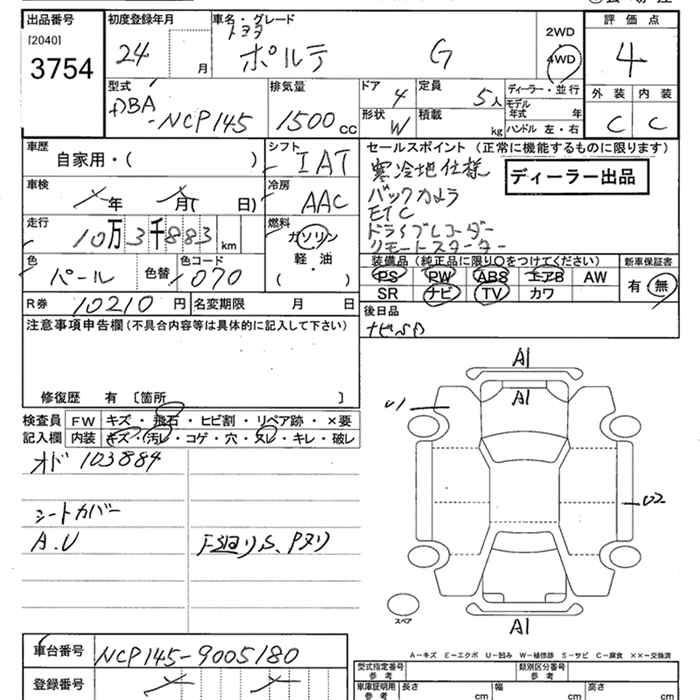 出品番号 初度登録年月 車名・グレード 評価点
[2040] トヨタ 2WD
3754 24 月 ポルテ G 4WD 4
型式 排気量 ドア 定員 ディーラー・並行 外装 内装
DBA 4 5人 モデル年式 年
-NCP145 1500cc 形状 積載 C C
W kg ハンドル 左・右
車歴 シフト セールスポイント (正常に機能するものに限ります)
自家用・( ) IAT 寒冷地仕様 ディーラー出品
車検 冷房 バックカメラ
年 月( 日) AAC ETC
走行 燃料 ドライブレコーダー
10万3千883km ガソリン リモートスターター
色 色替 色コード 軽・油 装備品 (純正品に限り○をつけてください) 新車保証書
パール 1070 ( ) PS PW ABS エアB AW 有・無
R券 10210円 名変期限 月 日 SR ナビ TV カワ
注意事項申告欄(不具合内容等は具体的に記入して下さい) 後日品
ナビSD
修復歴 有 〔箇所 〕
検査員 FW キズ・飛石・ヒビ割・リペア跡・×要
記入欄 内装 キズ・汚レ・コゲ・穴・スレ・キレ・破レ
オド 103884
シートカバー
A.U
A1
A1
U1
U2
スペア
A1
A-キズ E-エクボ U-凹み W-補修跡 S-サビ C-腐食 ××-交換済
車台番号 NCP145-9005180
登録番号
型式指定番号 参考 類別区分番号 参考
車庫証明用 参考 長さ cm 幅 cm 高さ cm